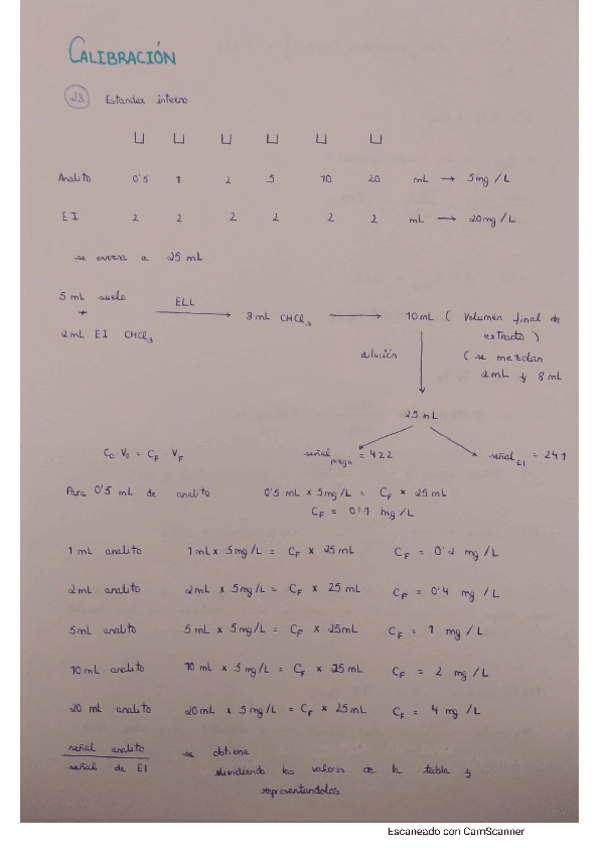 CALIBRACIÓN
23 Estandar interno
Analito 0'5 1 2 5 10 20 mL → 5mg/L
EI 2 2 2 2 2 2 mL → 20mg/L
se enrasa a 25 mL
5 mL suelo + 2mL EI CHCl3
ELL → 8 mL CHCl3 → 10mL ( Volumen final de
extracto )
( se mezclan
2mL y 8 mL
dilución
25 mL
C0 V0 = CF · VF
señal = 422
señal EI = 241
Para 0'5 mL de analito 0'5 mL x 5mg/L = CF x 25mL
CF = 0'1 mg/L
1mL analito 1mL x 5mg/L = CF x 25mL CF = 0'2 mg/L
2mL analito 2mL x 5mg/L = CF x 25 mL CF = 0'4 mg/L
5mL analito 5 mL x 5mg/L = CF x 25mL CF = 1 mg/L
10mL analito 10 mL x 5mg/L = CF x 25mL CF = 2 mg/L
20 mL analito 20mL x 5mg/L = CF x 25mL CF = 4 mg/L
señal analito / señal de EI
se obtiene
dividiendo los valores de la tabla y
representandolos
Escaneado con CamScanner